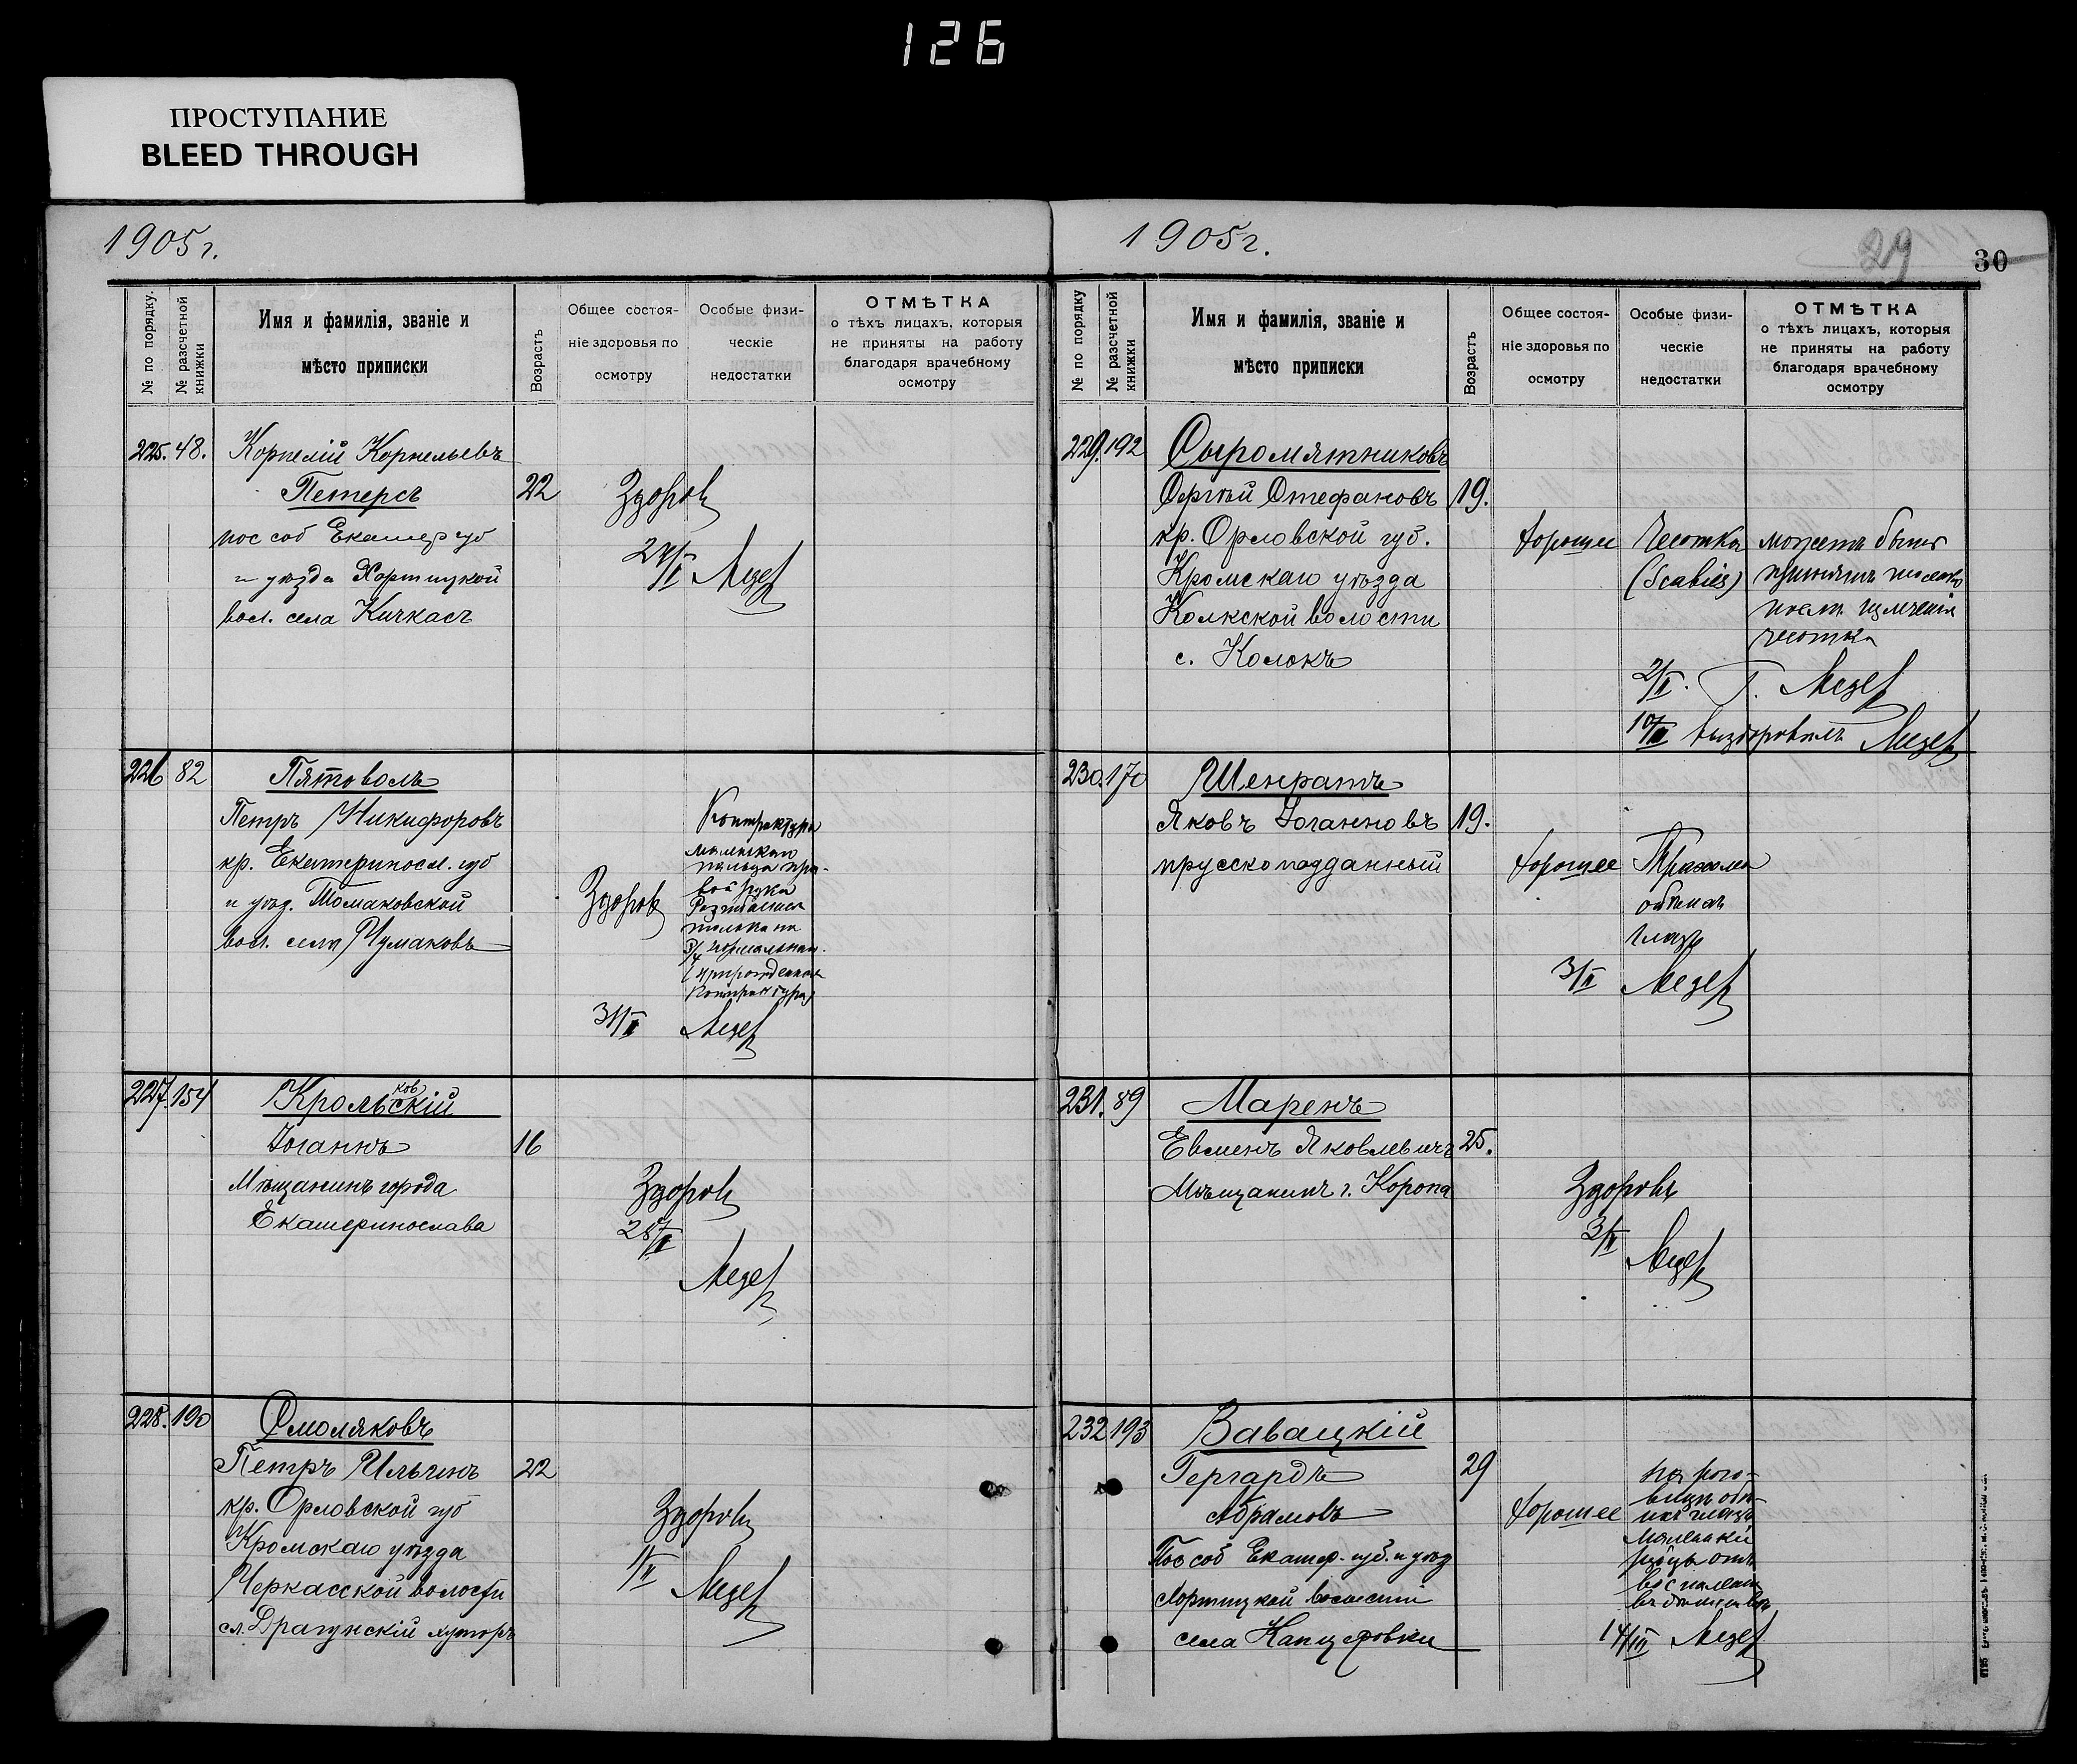 126
ПРОСТУПАНИЕ
BLEED THROUGH
1905г.
№ по порядку.
№ разсчетной книжки
Имя и фамилія, званіе и
мѣсто приписки
Возрастъ
Общее состоя-
ніе здоровья по
осмотру
Особые физи-
ческіе
недостатки
ОТМѢТКА
о тѣхъ лицахъ, которыя
не приняты на работу
благодаря врачебному
осмотру
225. 48. Корнелій Корнельевъ
Петерсъ 22 Здоровъ
пос соб Екатер губ
и уѣзда Хортицкой
вол. села Кичкасъ
226 82 Пятоволъ
Петръ Никифоровъ
кр. Екатериносл. губ
и уѣзд. Томаковской
вол. села Чумаковъ
22 Здоровъ
Контрактура
маленькаго
пальца пра-
вой руки
Разгибается
только на
3/4 нормальнаго
(прирожденная
контрактура)
31/I
227. 154 Крольковскій
Іоганнъ 16
Мѣщанинъ города
Екатеринослава
Здоровъ
28/I
228. 190 Смоляковъ
Петръ Ильинъ 22
кр. Орловской губ
Кромскаго уѣзда
Черкасской волости
сл. Драгунскій хуторъ
Здоровъ
1/II
1905г.
29
30
№ по порядку
№ разсчетной книжки
Имя и фамилія, званіе и
мѣсто приписки
Возрастъ
Общее состоя-
ніе здоровья по
осмотру
Особые физи-
ческіе
недостатки
ОТМѢТКА
о тѣхъ лицахъ, которыя
не приняты на работу
благодаря врачебному
осмотру
229. 192 Сыромятниковъ
Сергѣй Стефановъ 19.
кр. Орловской губ.
Кромскаго уѣзда
Колкской волости
с. Колокъ
Хорошее
Чесотка
(Scabies)
можетъ быть
принятъ только
послѣ излеченія
чесотки
2/II.
10/II выздоровѣлъ
230. 170 Шенратъ
Яковъ Іоганновъ 19.
прусскоподданный
Хорошее
Трахома
обѣихъ
глазъ
3/II
231. 89 Маренъ
Евменъ Яковлевичъ 25.
Мѣщанинъ г. Коропа
Здоровъ
3/II
232 193 Вавацкій
Гергардъ 29
Абрамовъ
Пос соб Екатер. губ. и уѣзд
Хортицкой волости
села Канцеровки
Хорошее
на рого-
вицѣ обѣ-
ихъ глазъ
маленькій
рубцы отъ
воспаленія
въ дѣтствѣ
14/III